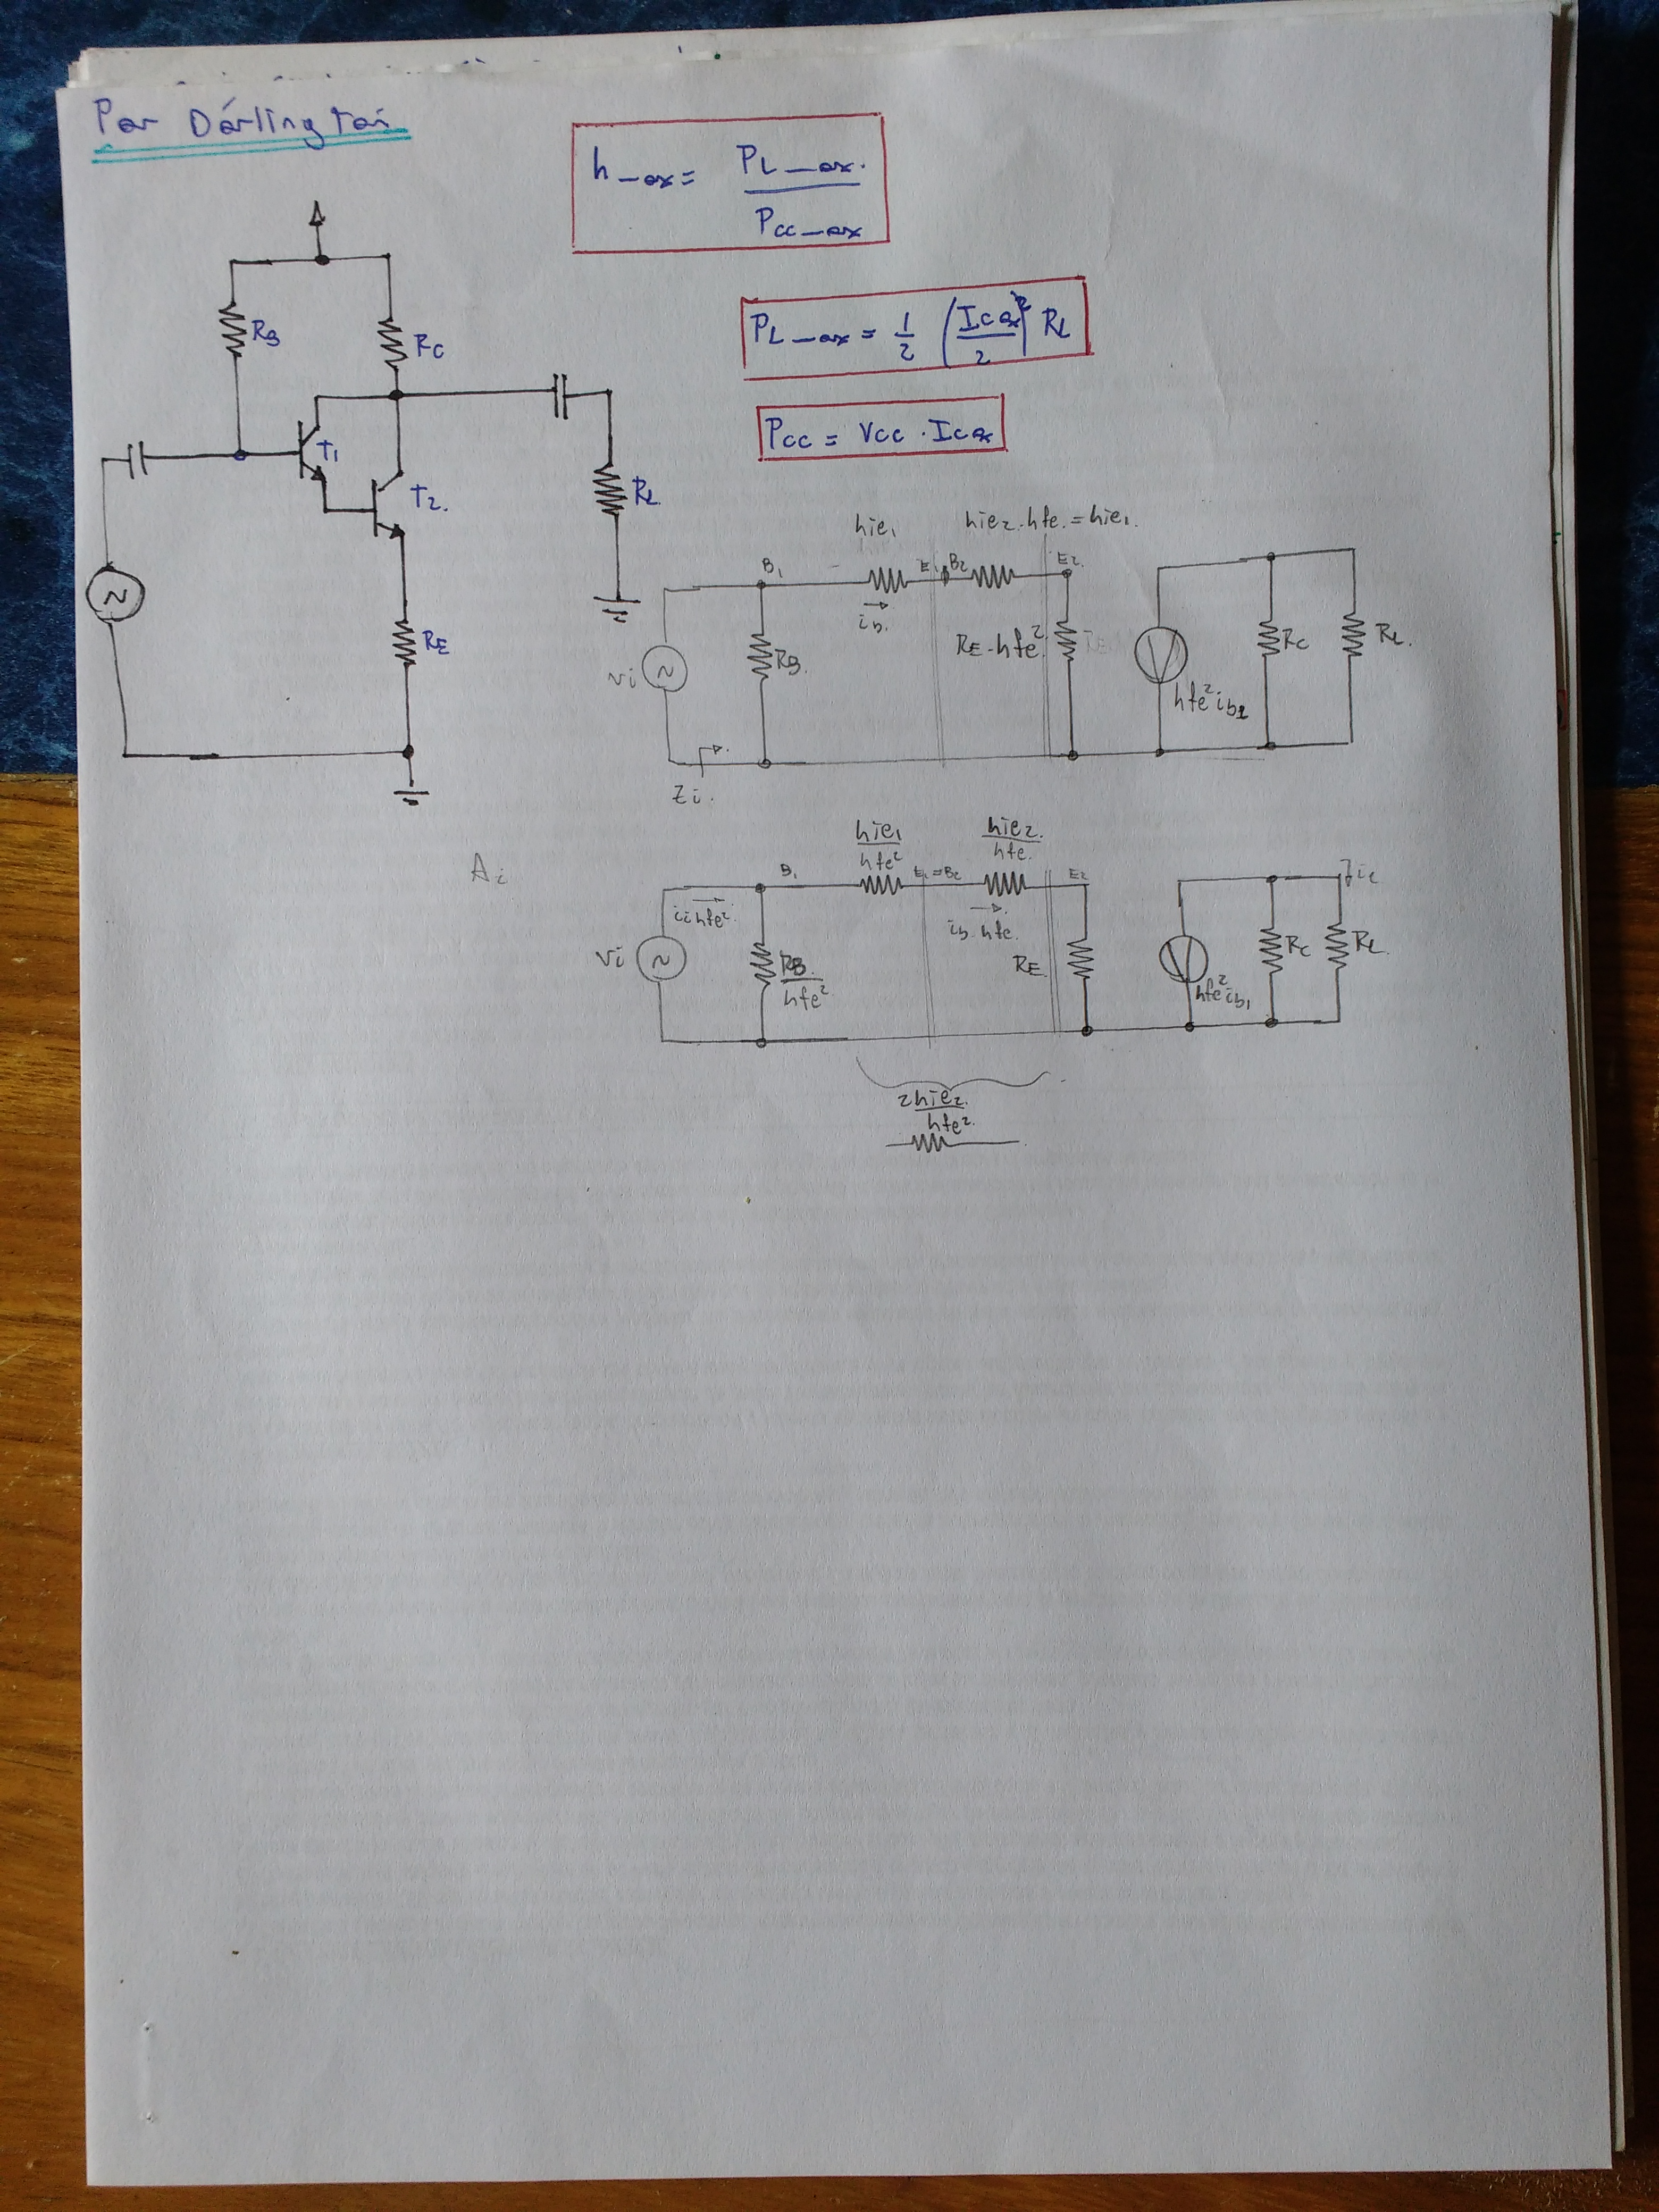 Par Dárlington
hmax = PLmax. / Pccmax
PLmax = 1/2 (ICQx/2)² RL
Pcc = Vcc · ICQx
RB
RC
T1
T2.
RL
RE
hie1 hie2·hfe = hie1.
B1 E1 B2 E2.
ib
vi
RB
RE·hfe²
hfe² ib1
RC
RL.
Zi.
Ai
hie1/hfe² hie2./hfe.
B1 E1=B2 E2
ii hfe²
ib·hfe.
iL
vi
RB./hfe²
RE
hfe² ib1
RC
RL
2hie2./hfe².